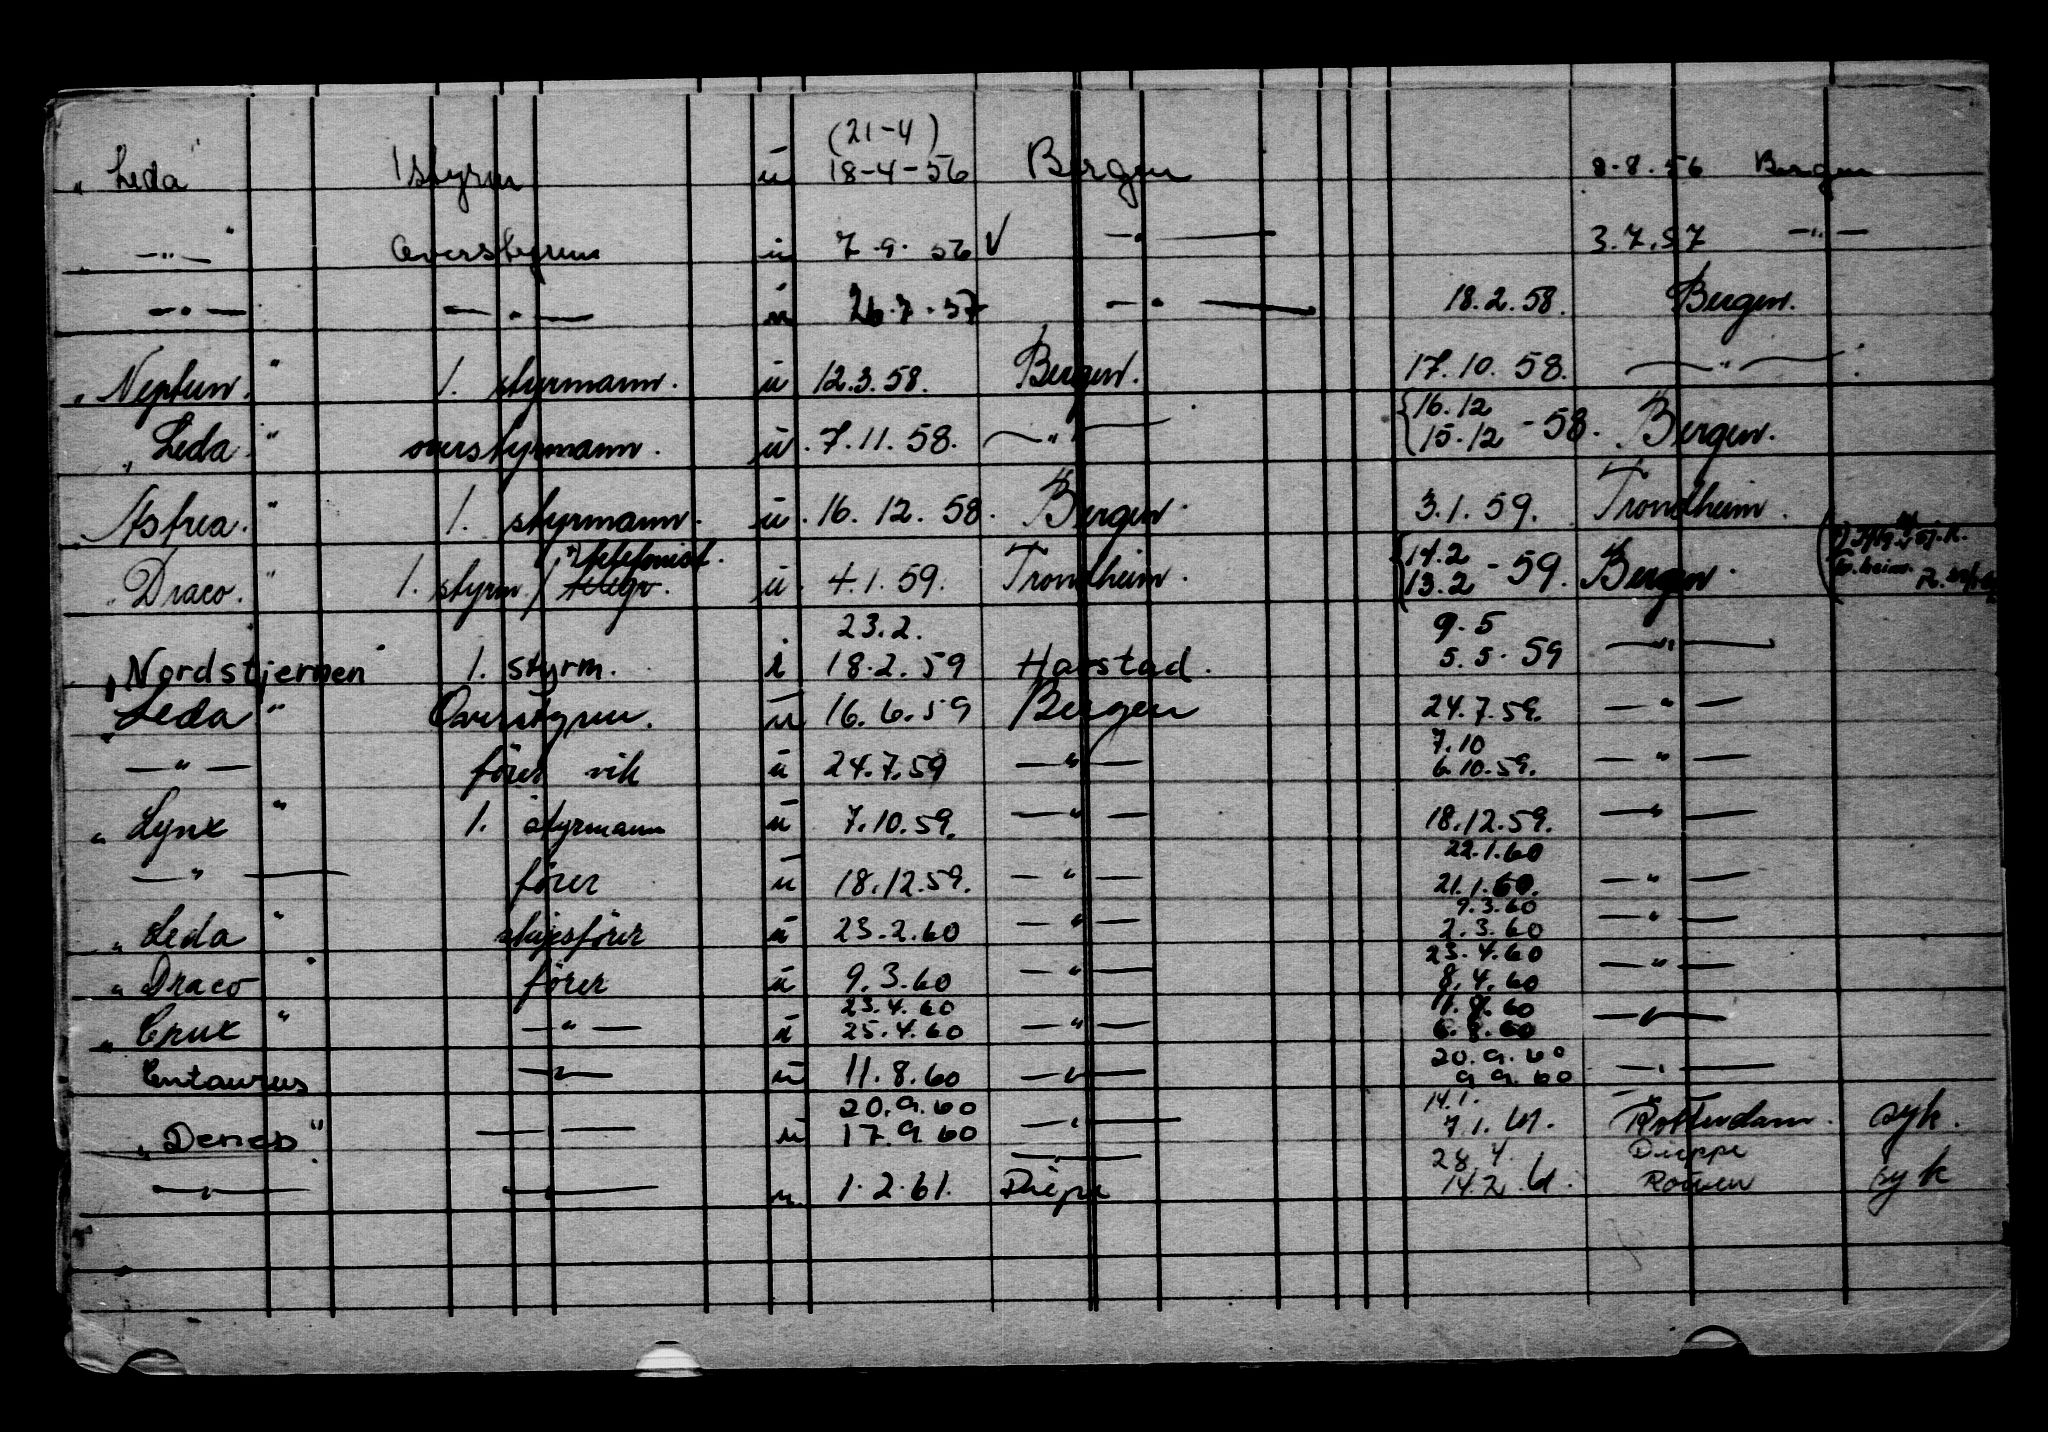 (21-4)
"Leda" 1 styrm u 18-4-56 Bergen 8-8.56 Bergen
" —"— " Overstyrm u 7.9.56 V —"— 3.7.57 —"—
—"— —"— u 26.7.57 —"— 18.2.58. Bergen.
"Neptun." 1. styrmann. u 12.3.58. Bergen. 17.10.58. —"—
"Leda" overstyrmann. u. 7.11.58. —"— {16.12 15.12 -58. Bergen.
"Astrea." 1. styrmann. u. 16.12.58. Bergen. 3.1.59. Trondheim.
*) telefonist.
"Draco." 1. styrm / telegr. u. 4.1.59. Trondheim. {14.2 13.2 -59. Bergen.
23.2. 9.5
"Nordstjernen" 1. styrm. u 18.2.59 Harstad. 5.5.59 —"—
"Leda" Overstyrm. u 16.6.59 Bergen 24.7.59. —"—
7.10
—"— förer vik u 24.7.59 —"— 6.10.59. —"—
"Lynx" 1. styrmann u 7.10.59. —"— 18.12.59. —"—
22.1.60
—"— förer u 18.12.59. —"— 21.1.60. —"—
9.3.60
"Leda" skipsförer u 23.2.60 —"— 2.3.60 —"—
23.4.60
"Draco" förer u 9.3.60 —"— 8.4.60 —"—
23.4.60 11.8.60
"Crux" —"— u 25.4.60 —"— 6.8.60 —"—
20.9.60
Centaurus —"— u 11.8.60 —"— 9.9.60 —"—
20.9.60 14.1.
"Deneb" —"— u 17.9.60 —"— 7.1.61. Rotterdam. syk.
28.4. Dieppe
—"— —"— u. 1.2.61. Diepe 14.2.61. Rouen syk